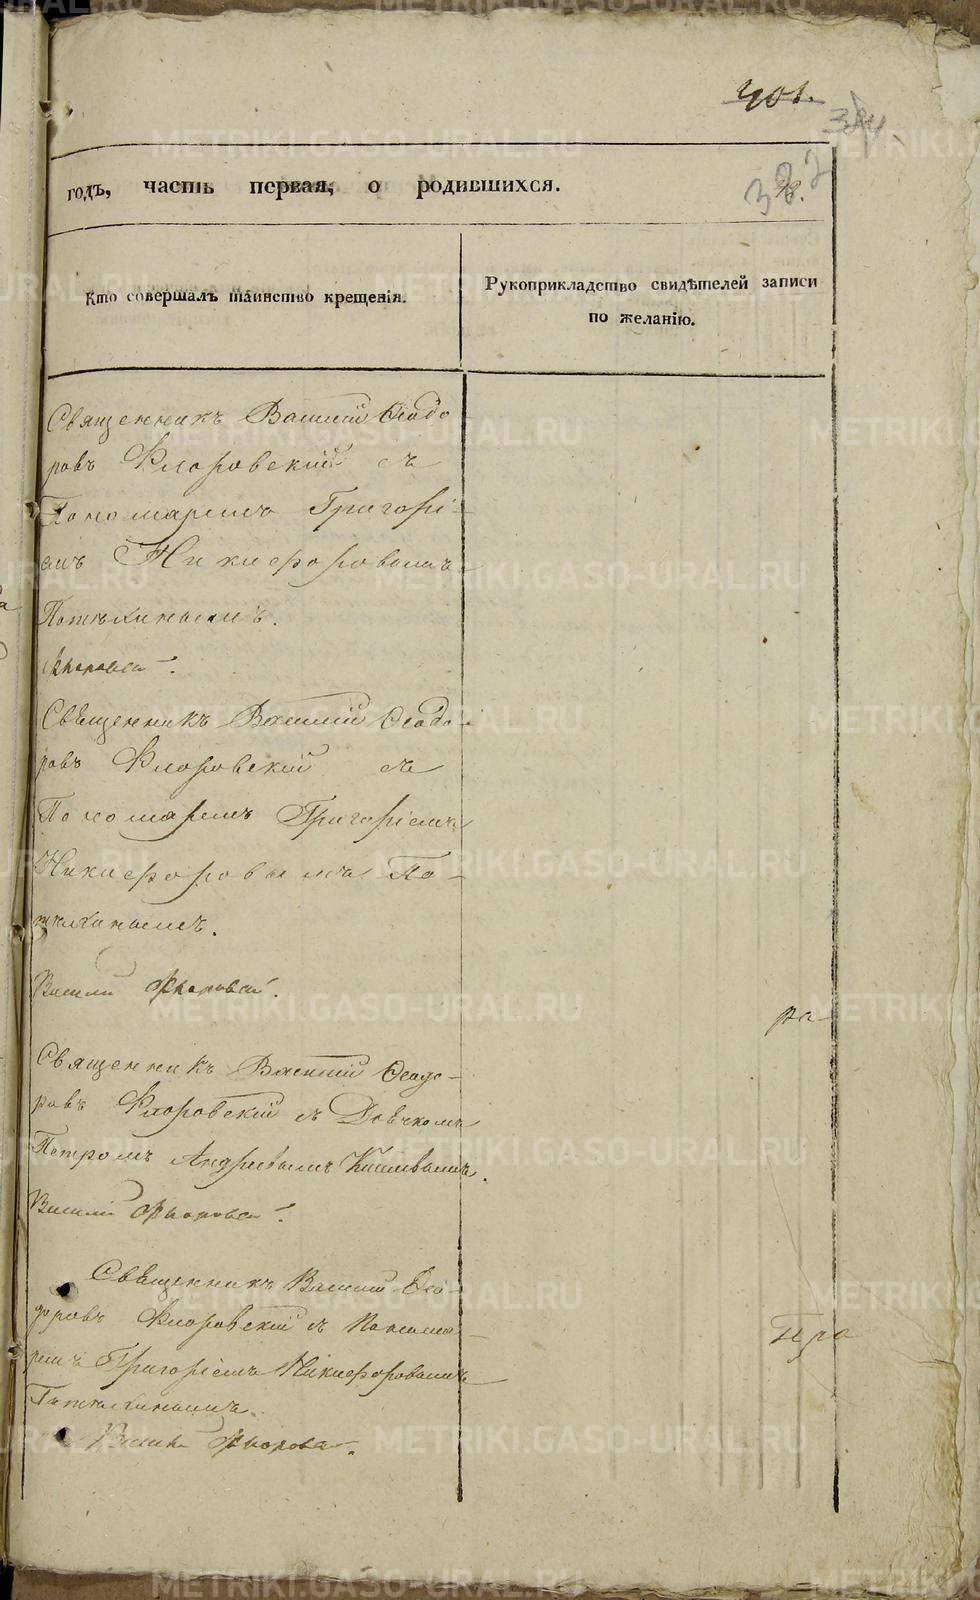 401.
384.
годъ, часть первая, о родившихся.
322
Кто совершалъ таинство крещенія.
Рукоприкладство свидѣтелей записи
по желанію.
Священникъ Василій Ѳеодо
ровъ Флоровскій съ
Пономаремъ Григорі-
емъ Никифоровымъ
Потѣхинымъ.
Священникъ Василій Ѳеодо-
ровъ Флоровскій съ
Пономаремъ Григоріемъ
Никифоровымъ По-
тѣхинымъ.
Василій Флоровскій.
Священникъ Василій Ѳеодо-
ровъ Флоровскій съ Дьячкомъ
Петромъ Андреевымъ
Василій Флоровскій.
Священникъ Василій Ѳео-
доровъ Флоровскій съ Понома-
ремъ Григоріемъ Никифоровымъ
Потѣхинымъ
Василій Флоровскій.
ра
Пра
METRIKI.GASO-URAL.RU